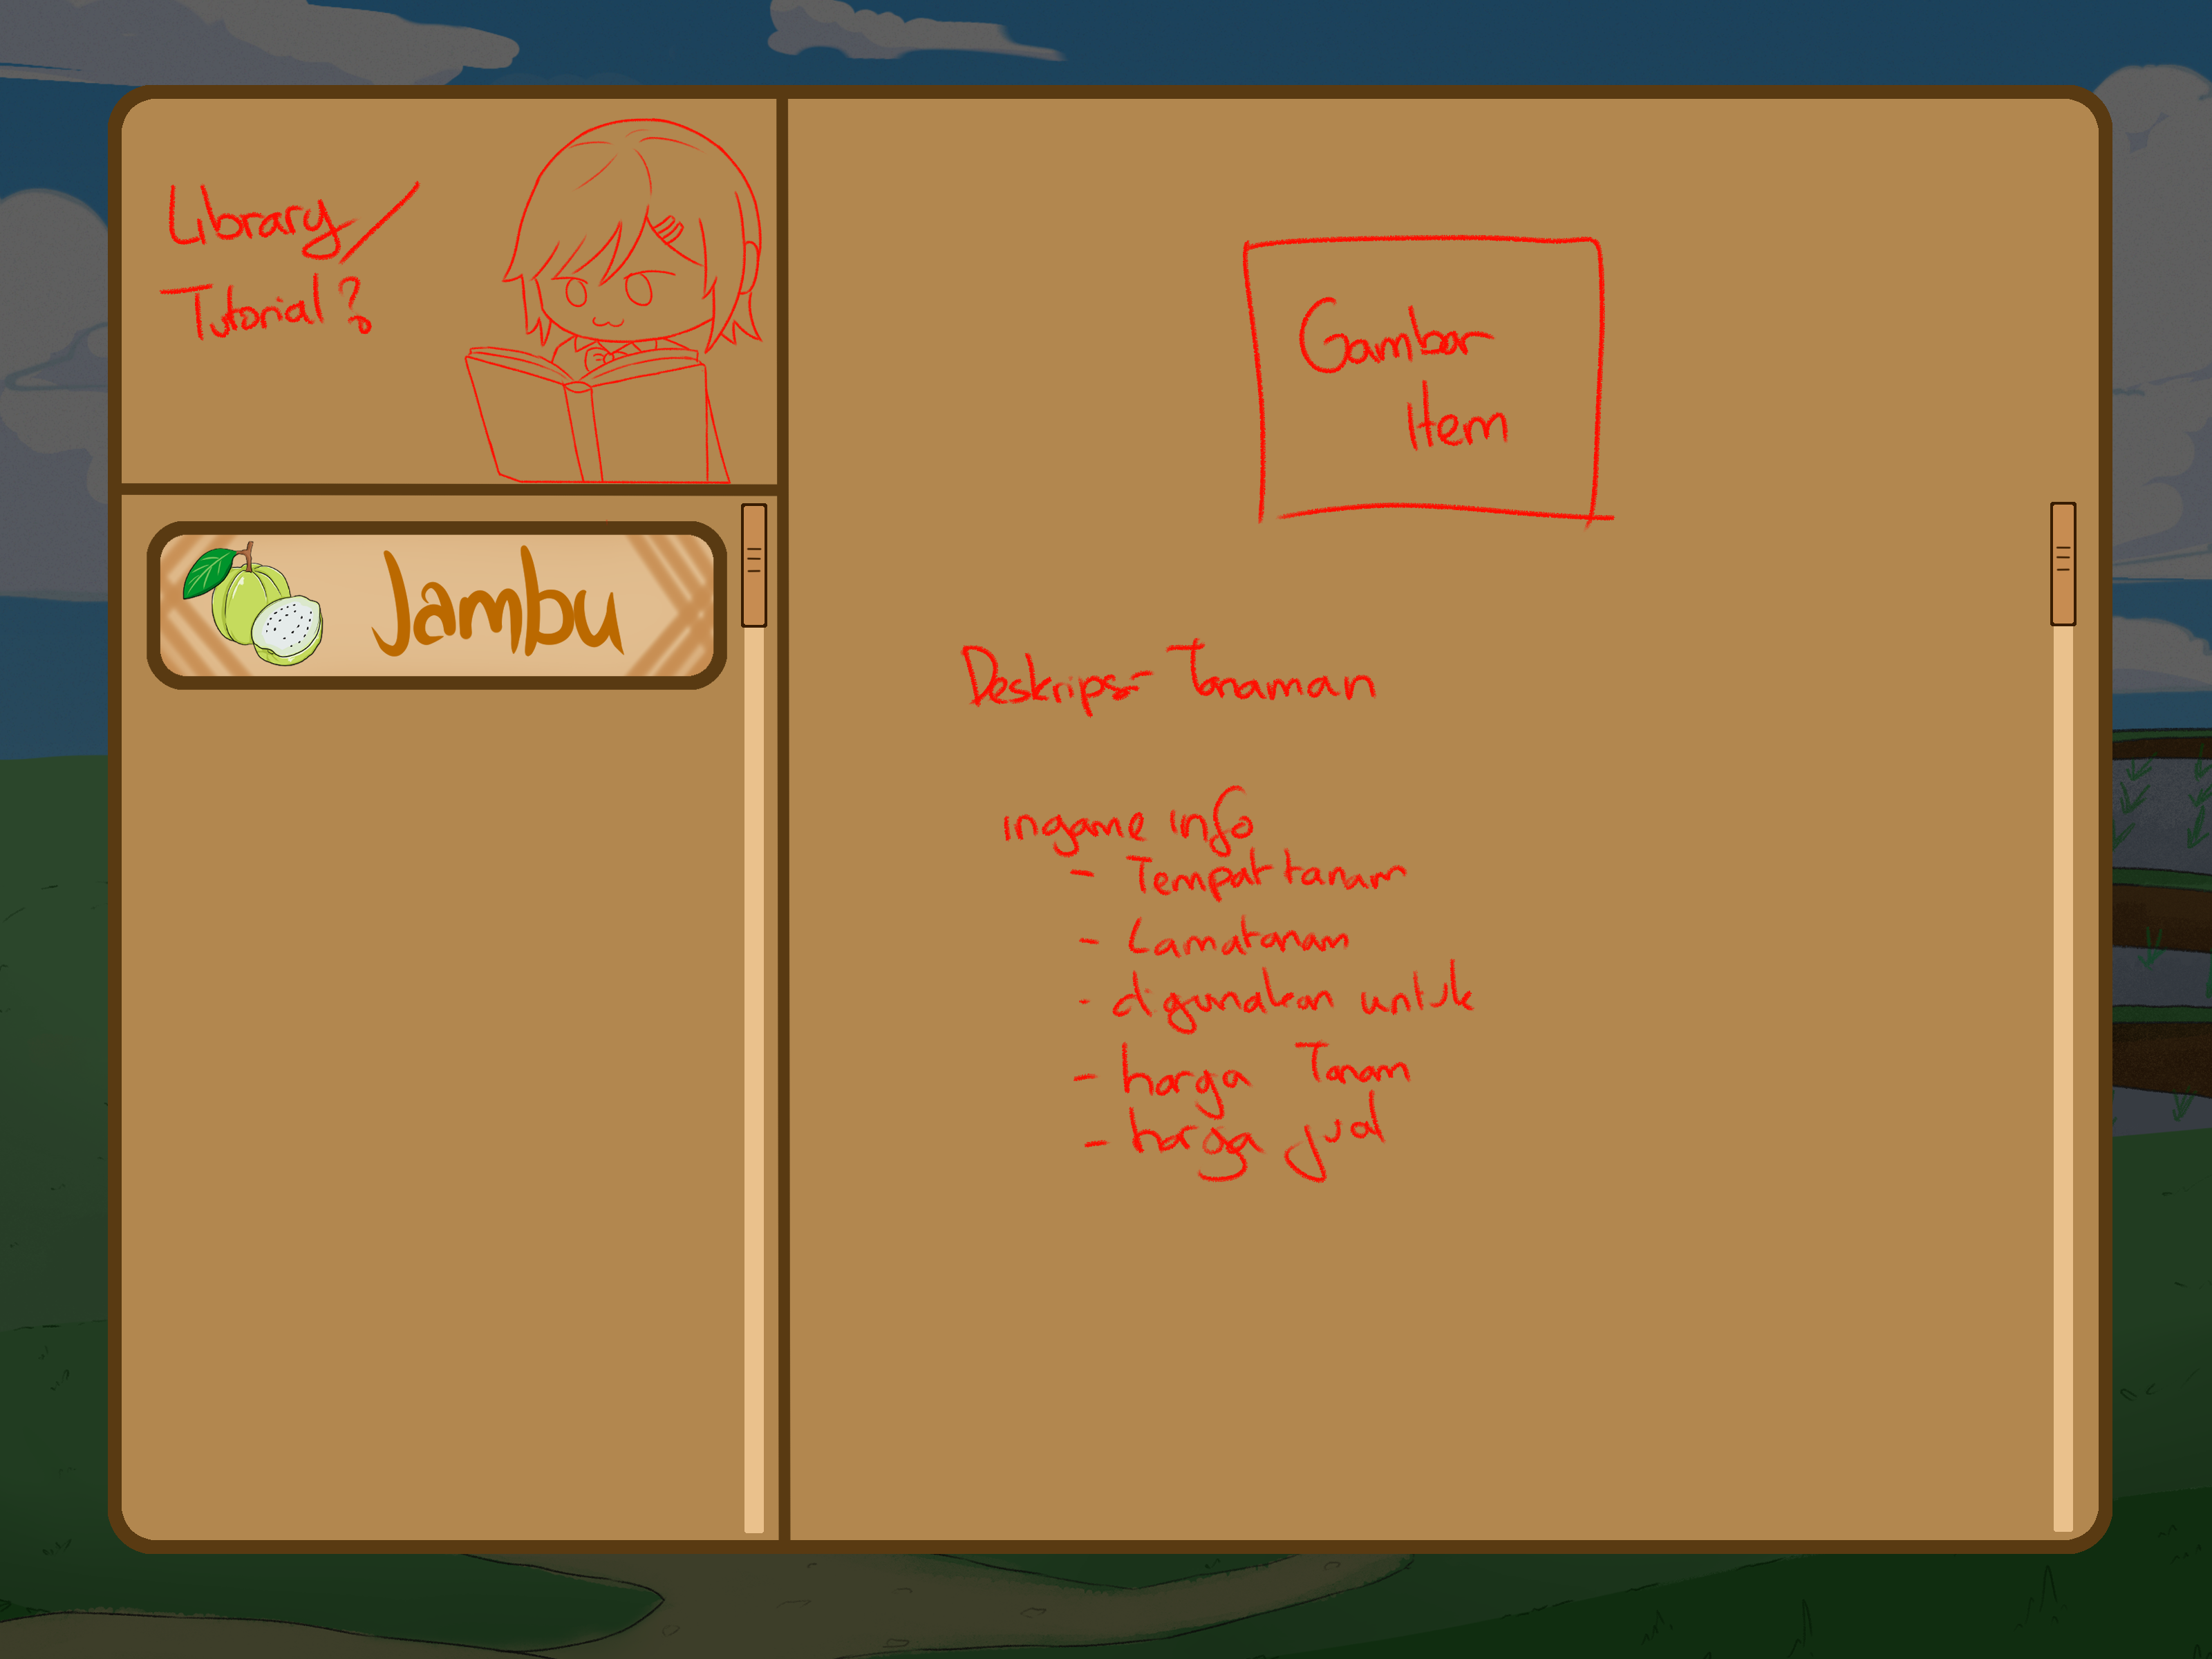 Library/
Tutorial?
Jambu
Gambar
Item
Deskripsi Tanaman
ingame info
- Tempat tanam
- Lamatanam
- digunakan untuk
- harga Tanam
- harga jual